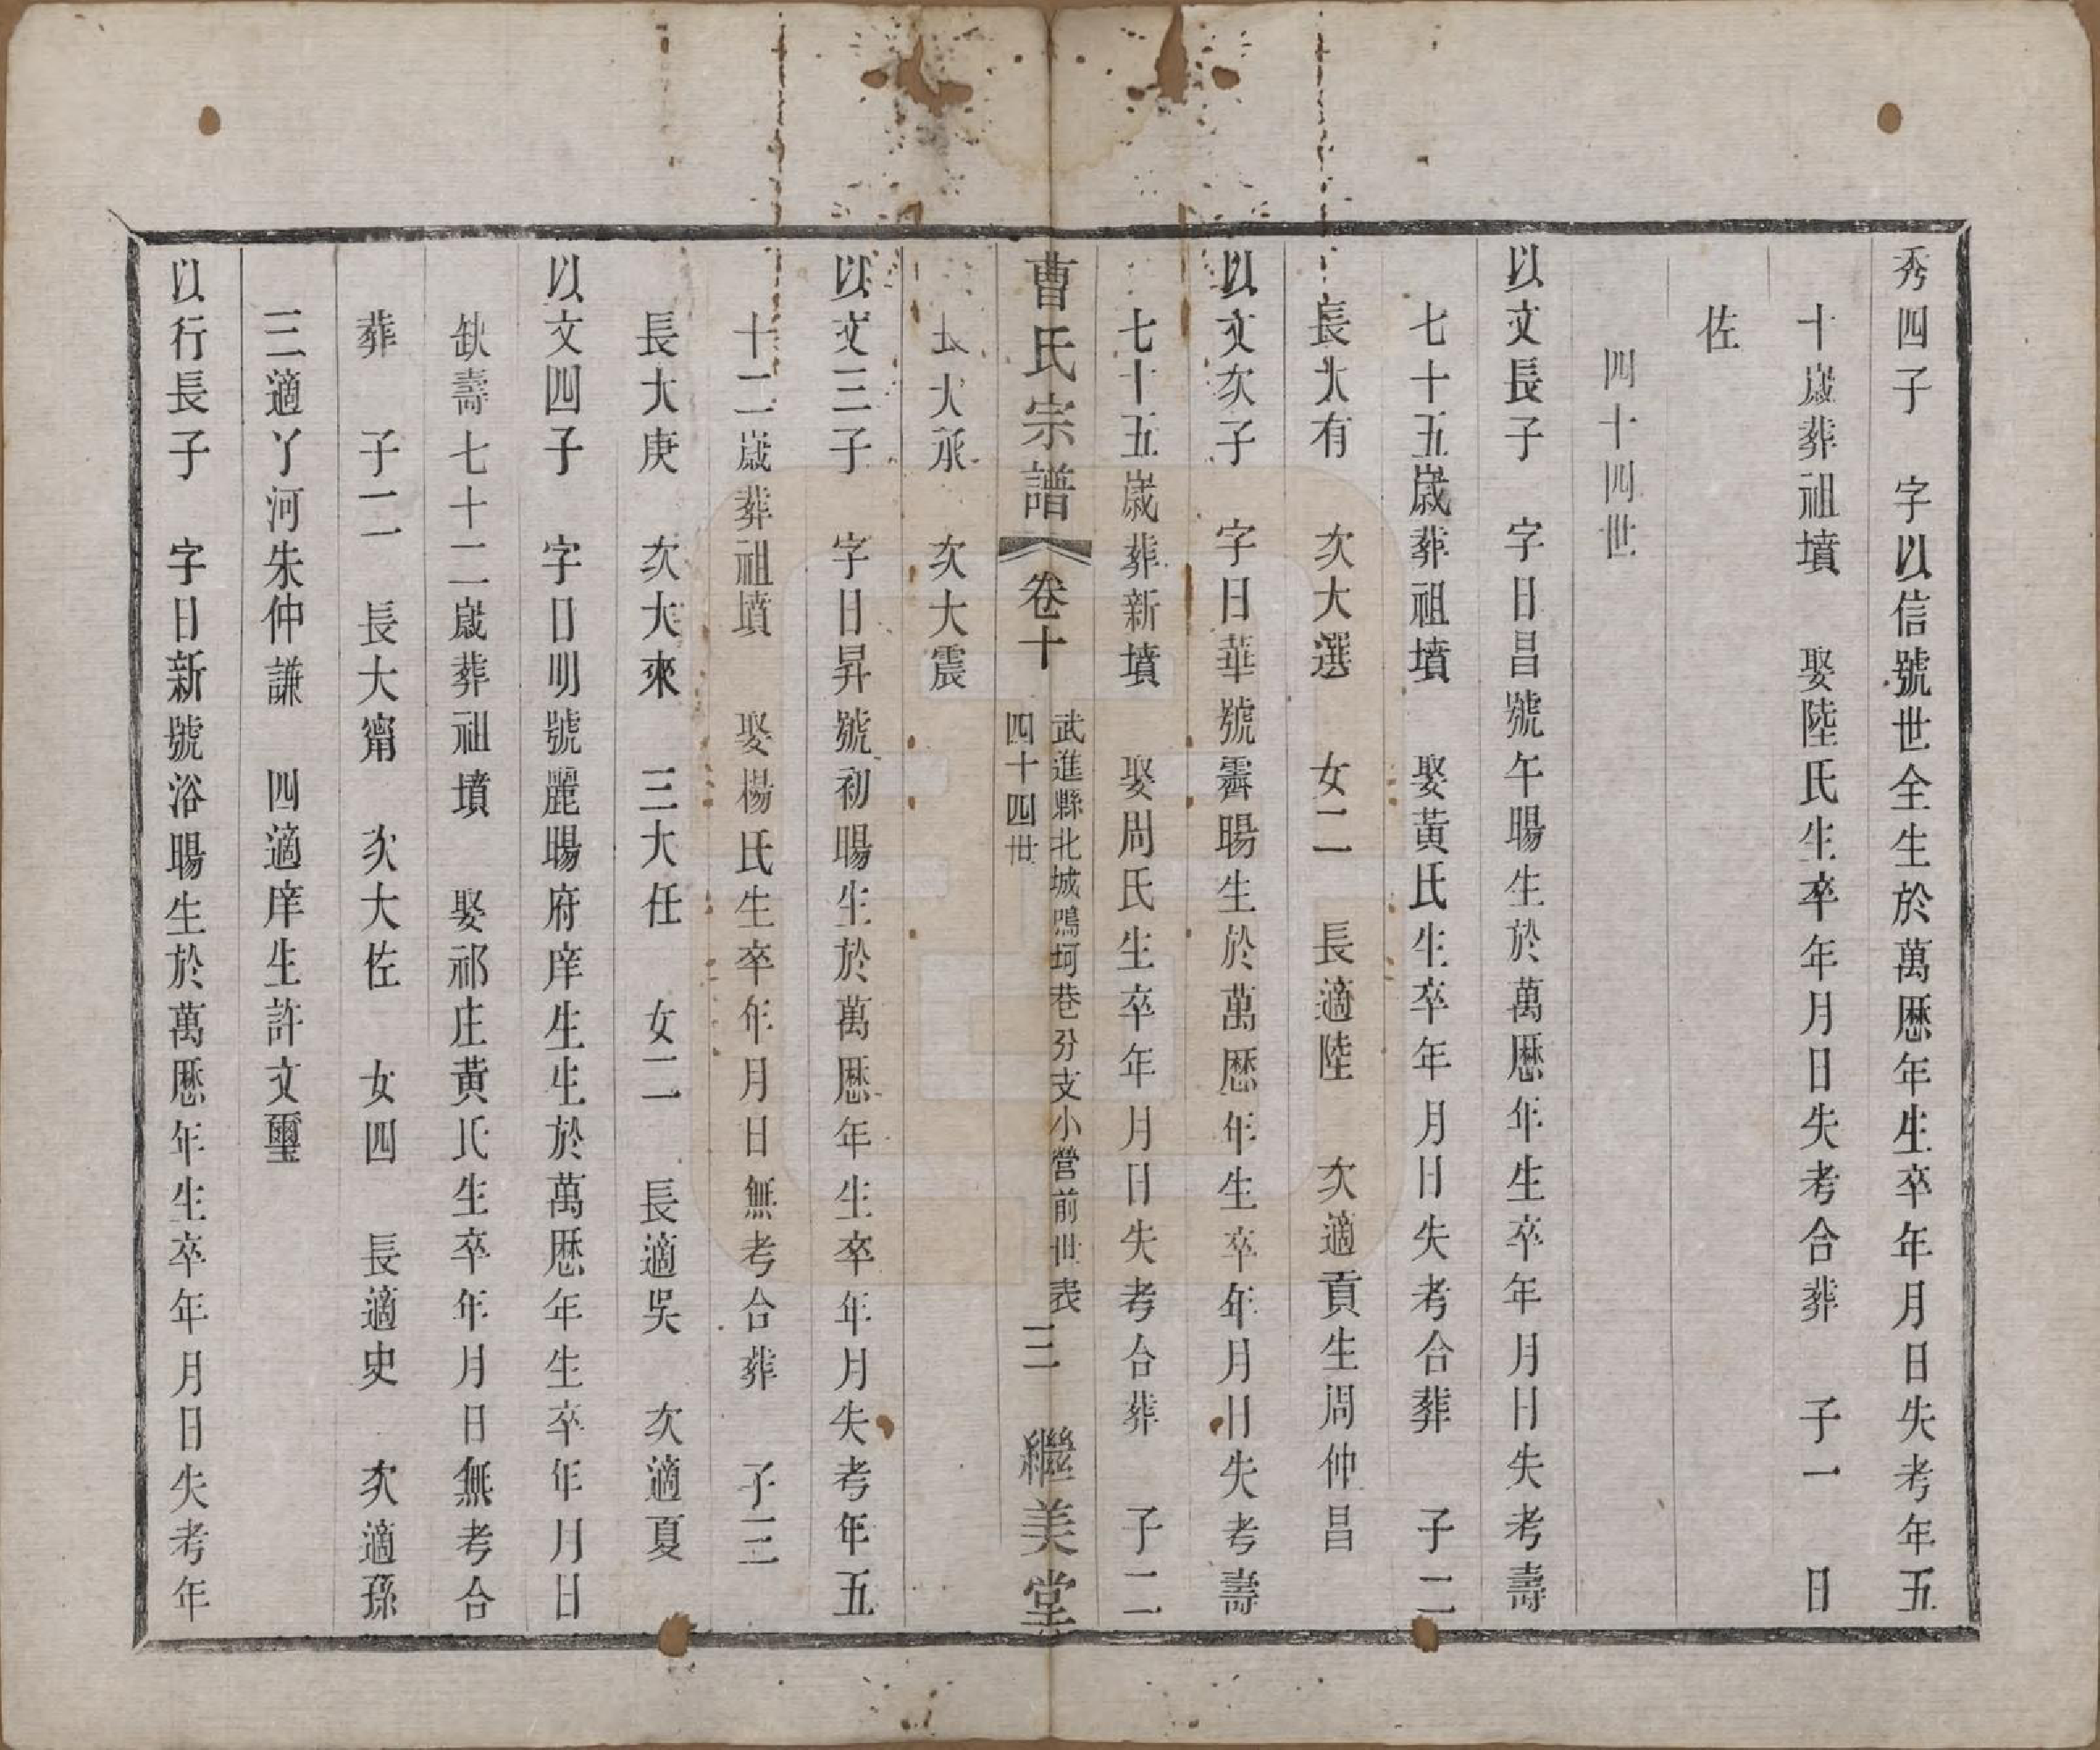 秀四子　字以信號世全生於萬厯年生卒年月日失考年五
十歲葬祖墳　娶陸氏生卒年月日失考合葬　子一　日
佐
四十四世
以文長子　字日昌號午暘生於萬厯年生卒年月日失考壽
七十五歲葬祖墳　娶黃氏生卒年月日失考合葬　子二
長大有　次大選　女二　長適陸　次適貢生周仲昌
以文次子　字日華號霽暘生於萬厯年生卒年月日失考壽
七十五歲葬新墳　娶周氏生卒年月日失考合葬　子二
曹氏宗譜　卷十　武進縣北城鳴珂巷分支小營前世表　四十四世　三　繼美堂
長大承　次大震
以文三子　字日昇號初暘生於萬厯年生卒年月失考年五
十二歲葬祖墳　娶楊氏生卒年月日無考合葬　子三
長大庚　次大來　三大任　女二　長適吳　次適夏
以文四子　字日明號麗暘府庠生生於萬厯年生卒年月日
缺壽七十二歲葬祖墳　娶祁庄黃氏生卒年月日無考合
葬　子二　長大甯　次大佐　女四　長適史　次適孫
三適丫河朱仲謙　四適庠生許文璽
以行長子　字日新號浴暘生於萬厯年生卒年月日失考年